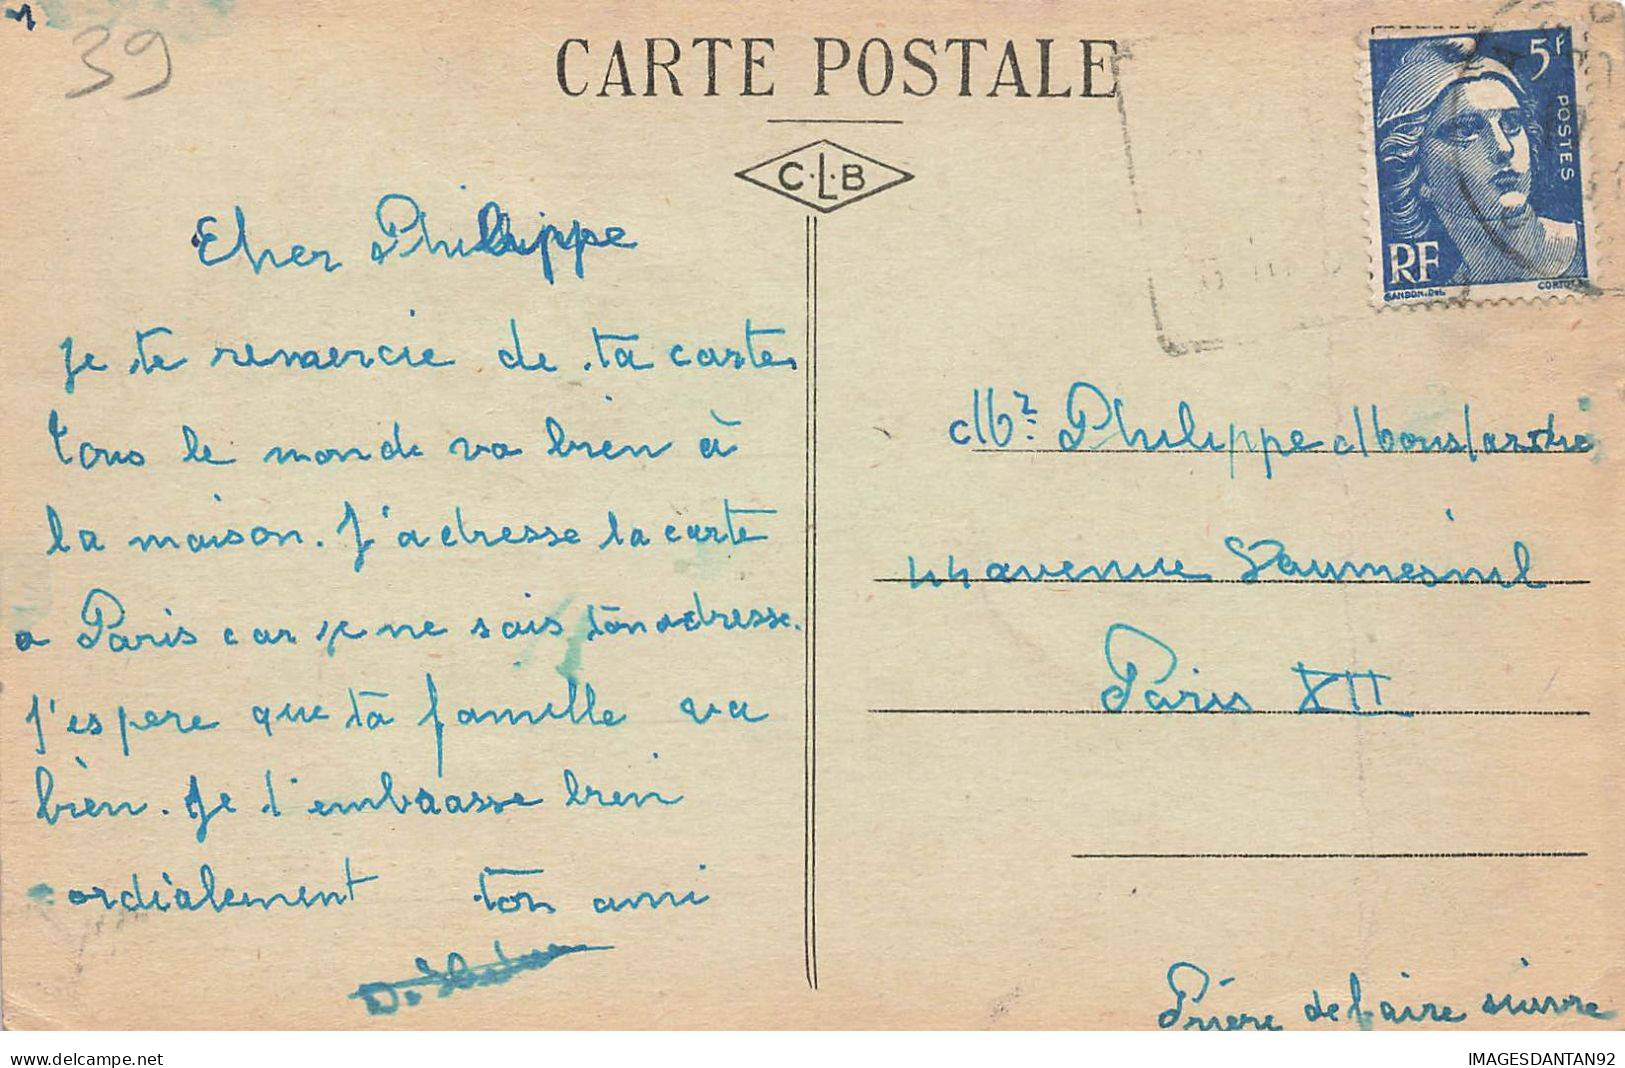 39
CARTE POSTALE
C.L.B
5F
POSTES
RF
GANDON.DEL
Cher Philippe
Je te remercie de ta carte.
Tous le monde va bien à
la maison. J'adresse la carte
a Paris car je ne sais ton adresse.
J'espere que ta famille va
bien. Je t'embrasse bien
cordialement ton ami
Mr. Philippe
44 avenue Daumesnil
Paris XII
Prière de faire suivre
IMAGESDANTAN92
delcampe.net